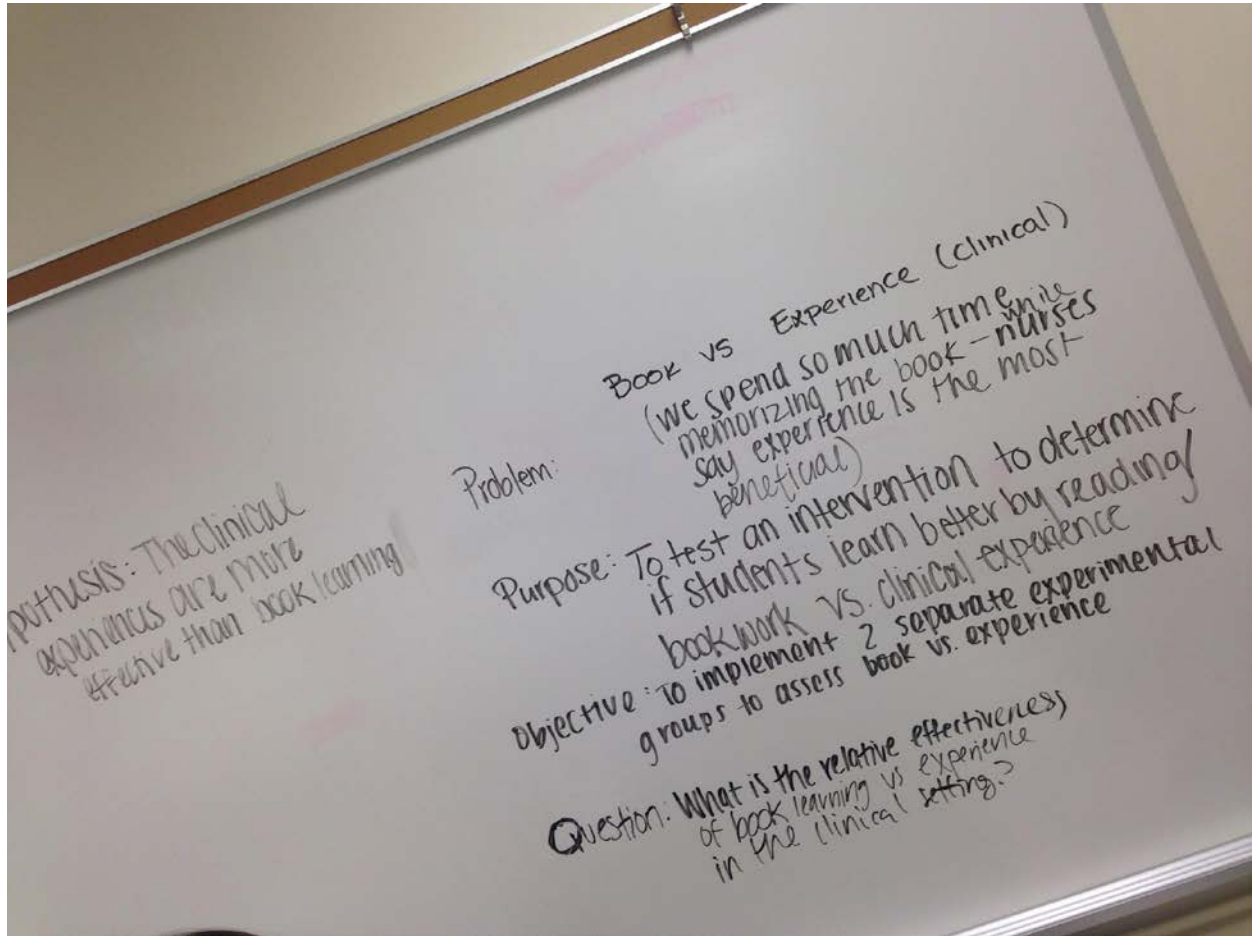 Book vs Experience (clinical)
Problem: (we spend so much time
memorizing the book - while nurses
say experience is the most
beneficial)
Purpose: To test an intervention to determine
if students learn better by reading/
bookwork vs. clinical experience
Objective: To implement 2 separate experimental
groups to assess book vs. experience
Question: What is the relative effectiveness
of book learning vs experience
in the clinical setting?
pothesis: The clinical
experiences are more
effective than book learning